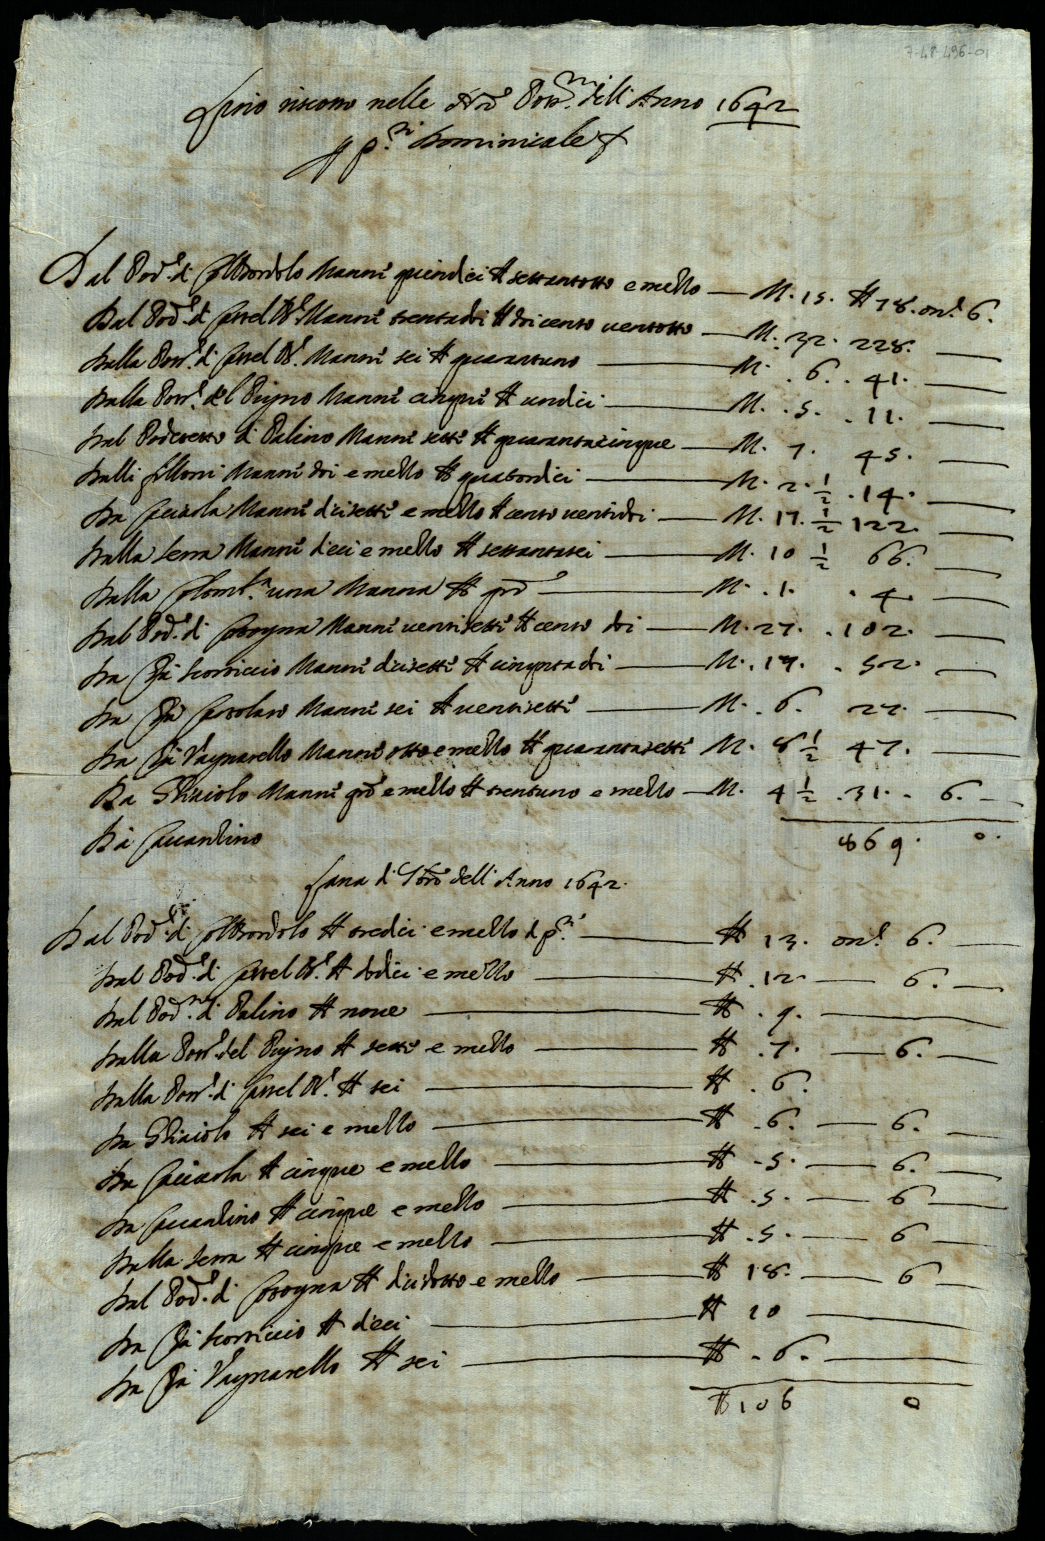 7-48 496-01
Lino riscosso nelle Nre Poss.ni dell'Anno 1642
p p.te Dominicale
Dal Pod.e di Colbordolo Manne quindici # settantotto e mezzo — M. 15. # 78. on.e 6.
Dal Pod.e di Castel Manne trentadoi # doicento ventotto — M. 32. 228. —
Dalla Poss.e di Castel Manne sei # quarantuno — M. 6. 41. —
Dalla Poss.e del Pigno Manne cinque # undici — M. 5. 11. —
Dal Poderetto di Palino Manne sette # quarantacinque — M. 7. 45. —
Dalli Manne doi e mezzo # quatordici — M. 2. 1/2 . 14. —
Da Cacciola Manne dicisette e mezzo # cento ventidoi — M. 17. 1/2 122. —
Dalla Serra Manne dieci e mezzo # sessantasei — M. 10 1/2 66. —
Dalla Colomb.a una Manna # qro — M. 1. 4. —
Dal Pod.e di Cotogna Manne ventisette # cento doi — M. 27. 102. —
Da Cà Scorticcio Manne dicisette # cinqntadoi — M. 17. 52. —
Da Cà Manne sei # ventisette — M. 6. 27. —
Da Cà Vagnarello Manne otto e mezzo # quarantasette M. 8 1/2 47. —
Da Ghiaiolo Manne qro e mezzo # trentuno e mezzo — M. 4 1/2 . 31. 6. —
Da Caccandino 869. 0.
Lana di dell'Anno 1642.
Dal Pod.e di Colbordolo # tredici e mezzo — # 13. on.e 6. —
Dal Pod.e di Castel # dodici e mezzo — # 12 — 6. —
Dal Pod. di Palino # nove — # 9. —
Dalla Poss.e del Pigno # sette e mezzo — # 7. — 6. —
Dalla Poss.e di Castel # sei — # 6.
Da Ghiaiolo # sei e mezzo — # 6. — 6. —
Da Cacciola # cinque e mezzo — # 5. — 6. —
Da Caccandino # cinque e mezzo — # 5. — 6 —
Dalla Serra # cinque e mezzo — # 5. — 6 —
Dal Pod.e di Cotogna # dicidotto e mezzo — # 18. — 6 —
Da Cà Scorticcio # dieci — # 10 —
Da Cà Vagnarello # sei — # 6. —
# 106 0